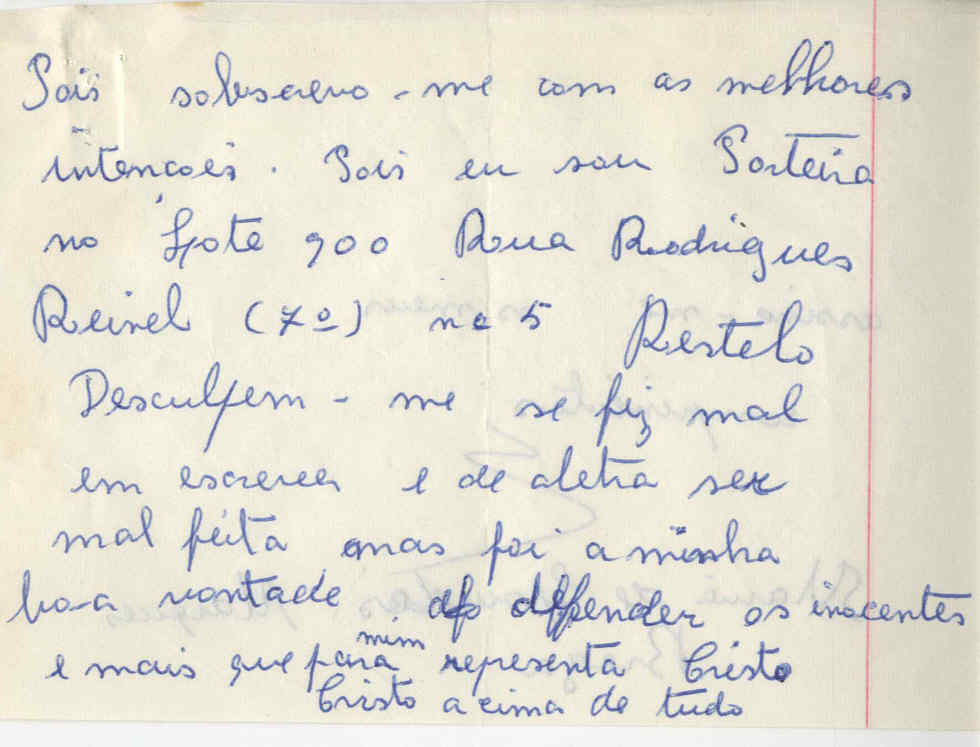 Pois subscrevo-me com as melhores
intencoes. Pois eu sou Porteira
no Lote 900 Rua Rodrigues
Reinel (7º) nº 5 Restelo
Desculpem-me se fiz mal
em escrever e de aletra ser
mal feita mas foi a minha
boa vontade deffender os inocentes
e mais que para mim representa Cristo
Cristo acima de tudo